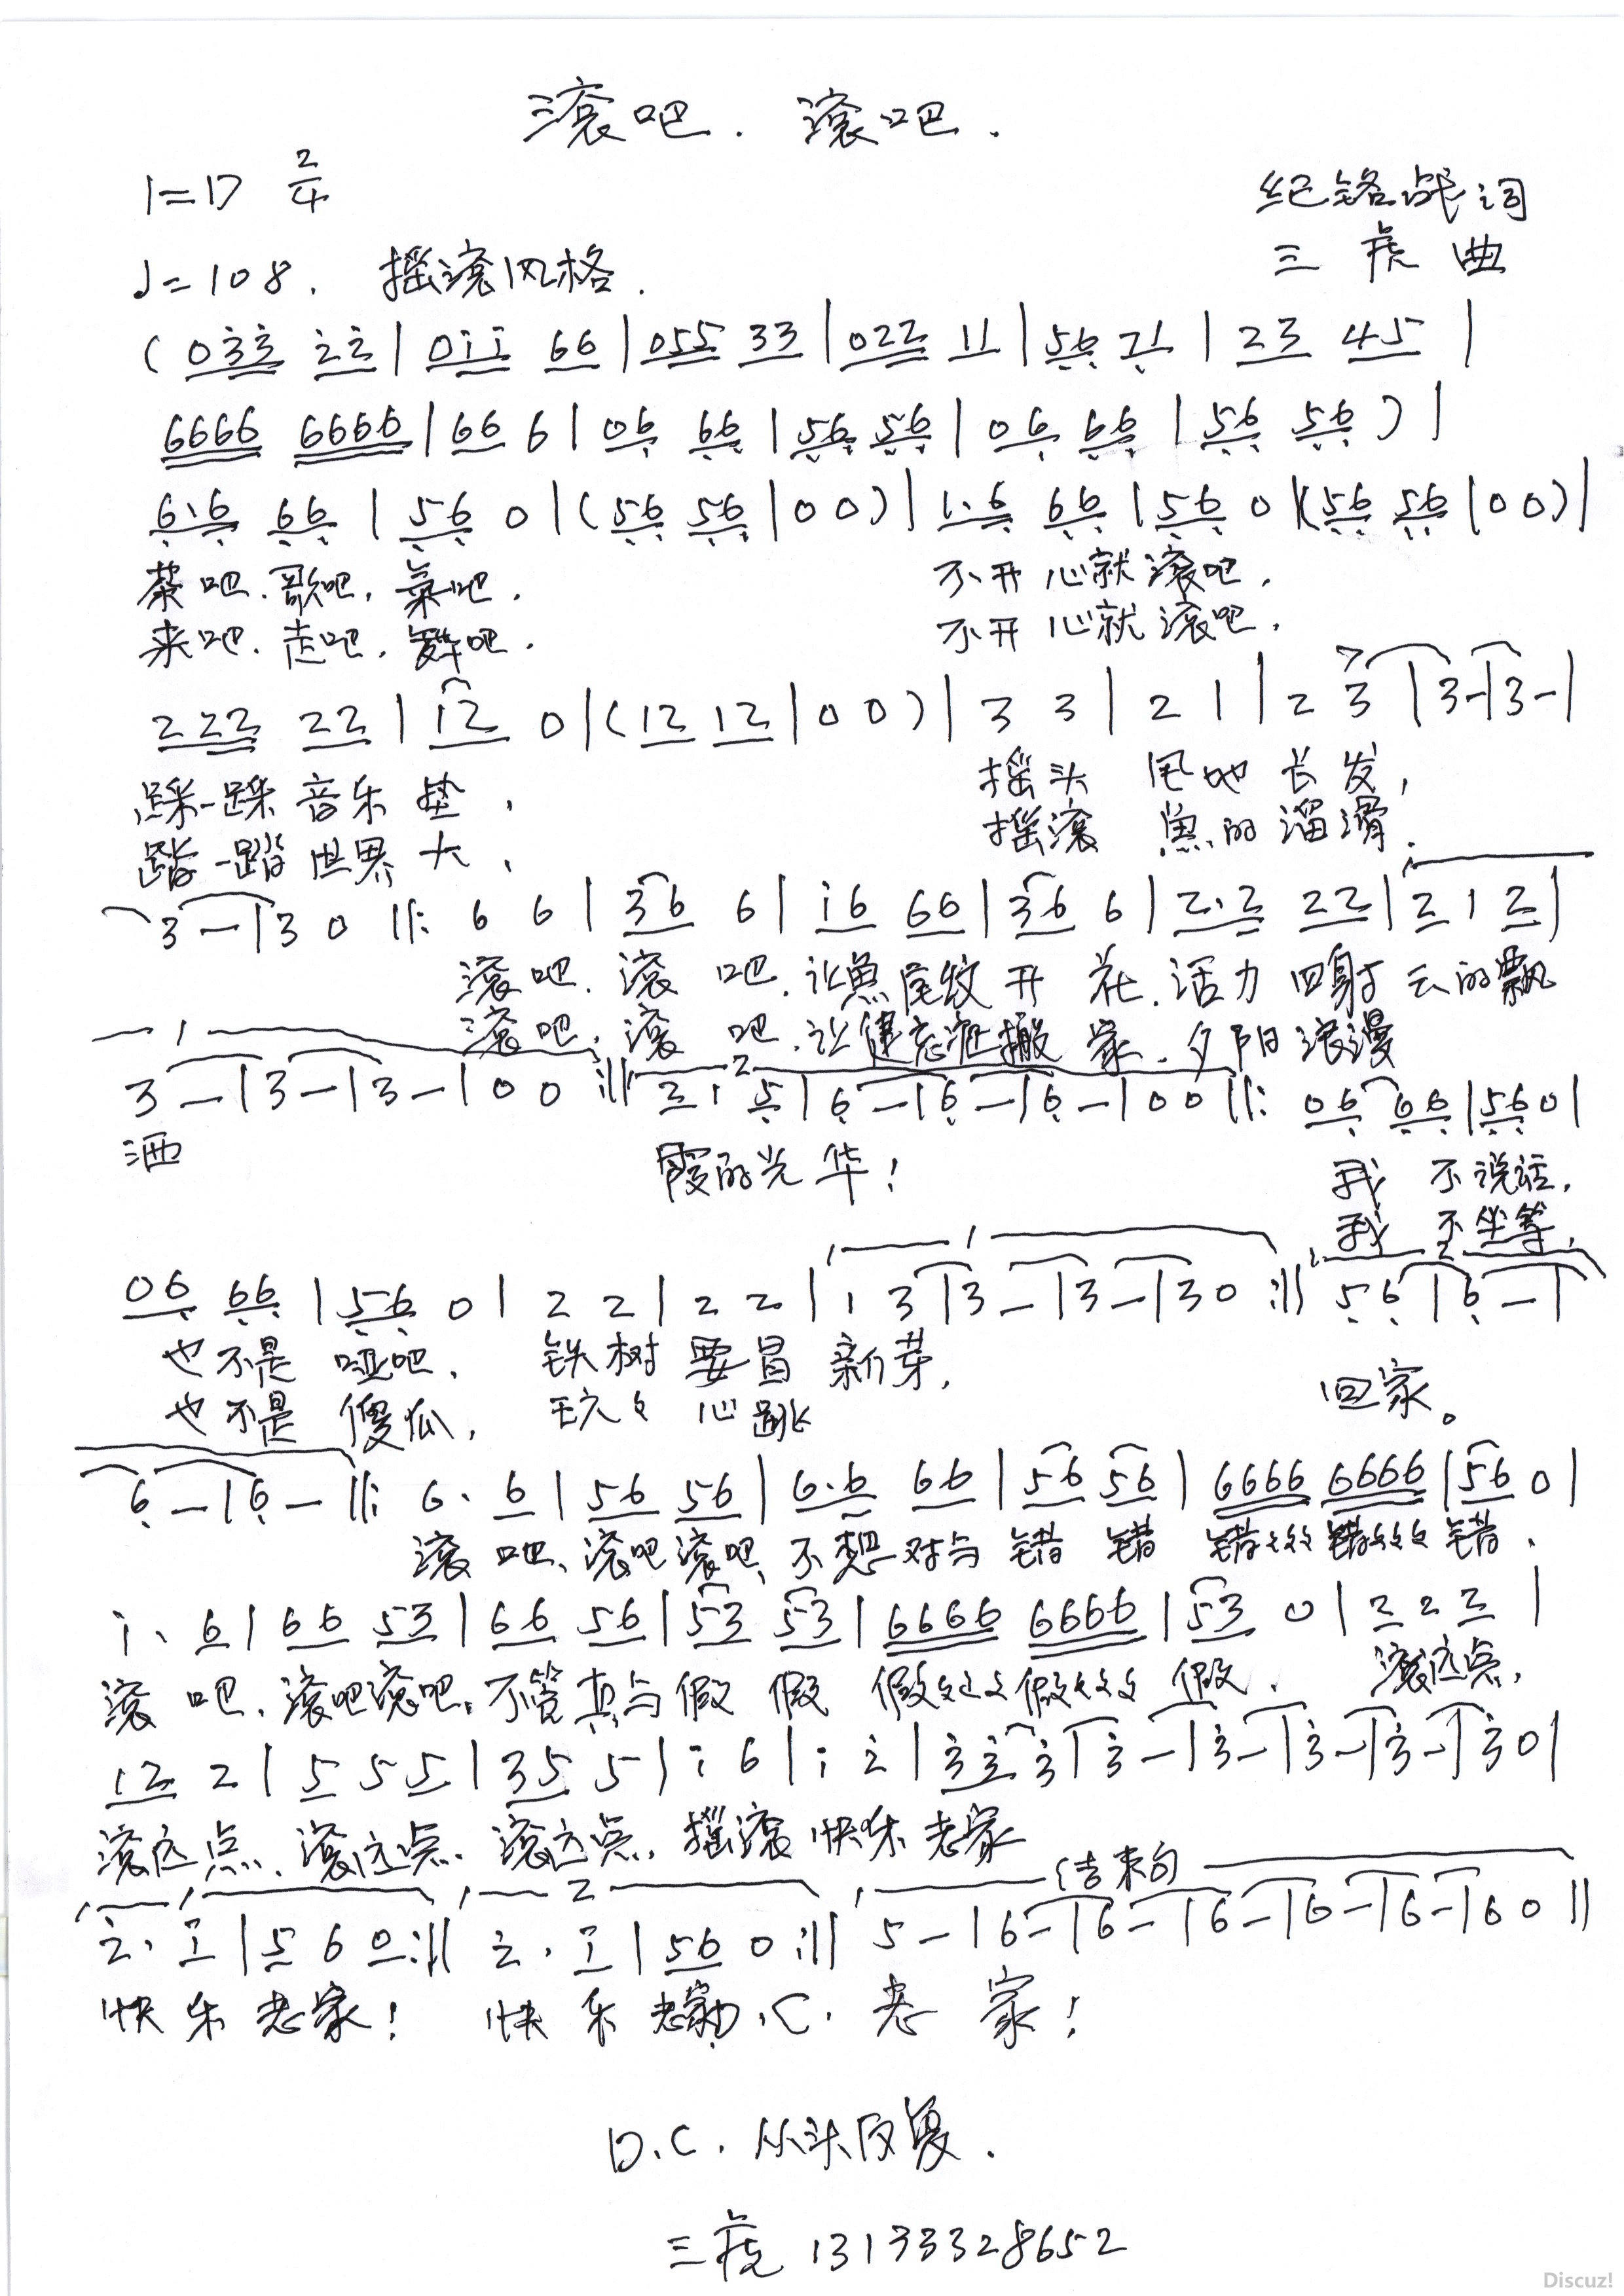 滚吧．滚吧．
1=D 2/4
纪铭战词
♩=108． 摇滚风格．
三虎曲
( 0 3̇3̇ 2̇2̇ | 0 1̇1̇ 66 | 055 33 | 022 11 | 5̣6̣ 7̣1 | 23 45 |
6666 6666 | 66 6 | 06̣ 6̣6̣ | 5̣6̣ 5̣6̣ | 06̣ 6̣6̣ | 5̣6̣ 5̣6̣ ) |
6̣·6̣ 6̣6̣ | 5̣6̣ 0 | (5̣6̣ 5̣6̣ | 00) | 1·6̣ 6̣6̣ | 5̣6̣ 0 | (5̣6̣ 5̣6̣ | 00) |
茶吧．歌吧，氧吧， 不开心就滚吧，
来吧．走吧，舞吧． 不开心就滚吧，
222 22 | 12 0 | (12 12 | 00) | 3 3 | 2 1 | 2 3 | 3- | 3- |
踩一踩音乐垫， 摇头 甩她长发，
踏一踏世界大， 摇滚 鱼的溜滑．
3 - | 3 0 ‖: 6 6 | 36 6 | 1̇6 66 | 36 6 | 2·2 22 | 2 1 2 |
滚吧．滚吧．让鱼尾纹开花．活力四射云的飘
滚吧．滚吧．让健忘症搬家．夕阳浪漫
1 2
3 - | 3 - | 3 - | 0 0 :‖ 2 1 5̣ | 6̣ - | 6̣ - | 6̣ - | 0 0 ‖: 06̣ 6̣6̣ | 5̣6̣ 0 |
洒 霞的光华！ 我 不说话，
我 不坐等，
1 2
06̣ 6̣6̣ | 5̣6̣ 0 | 2 2 | 2 2 | 1 3 | 3 - | 3 - | 3 0 :‖ 5̣ 6̣ | 6̣ - |
也不是 哑吧． 铁树要冒新芽， 回家。
也不是 傻瓜， 玩々心跳
6̣ - | 6̣ - ‖: 6· 6 | 56 56 | 6·6 66 | 56 56 | 6666 6666 | 56 0 |
滚吧、滚吧滚吧、不想对与错 错 错々々々错々々々错．
1̇· 6 | 66 53 | 66 56 | 53 53 | 6666 6666 | 53 0 | 2 2 2 |
滚吧、滚吧滚吧，不管真与假 假 假々々々假々々々假． 滚远点，
12 2 | 5 5 5 | 35 5 | 1̇ 6 | 1̇ 2̇ | 3̇3̇ 3̇ | 3̇ - | 3̇ - | 3̇ - | 3̇ - | 3̇ 0 |
滚远点、滚远点．滚远点，摇滚快乐老家
1 2 结束句
2̇· 1̇ | 5 6 0 :‖ 2̇· 1̇ | 56 0 :‖ 5 - | 6 - | 6 - | 6 - | 6 - | 6 - | 6 0 ‖
快乐老家！ 快乐老家D.C. 老家！
D.C. 从头反复．
三虎 13133328652
Discuz!